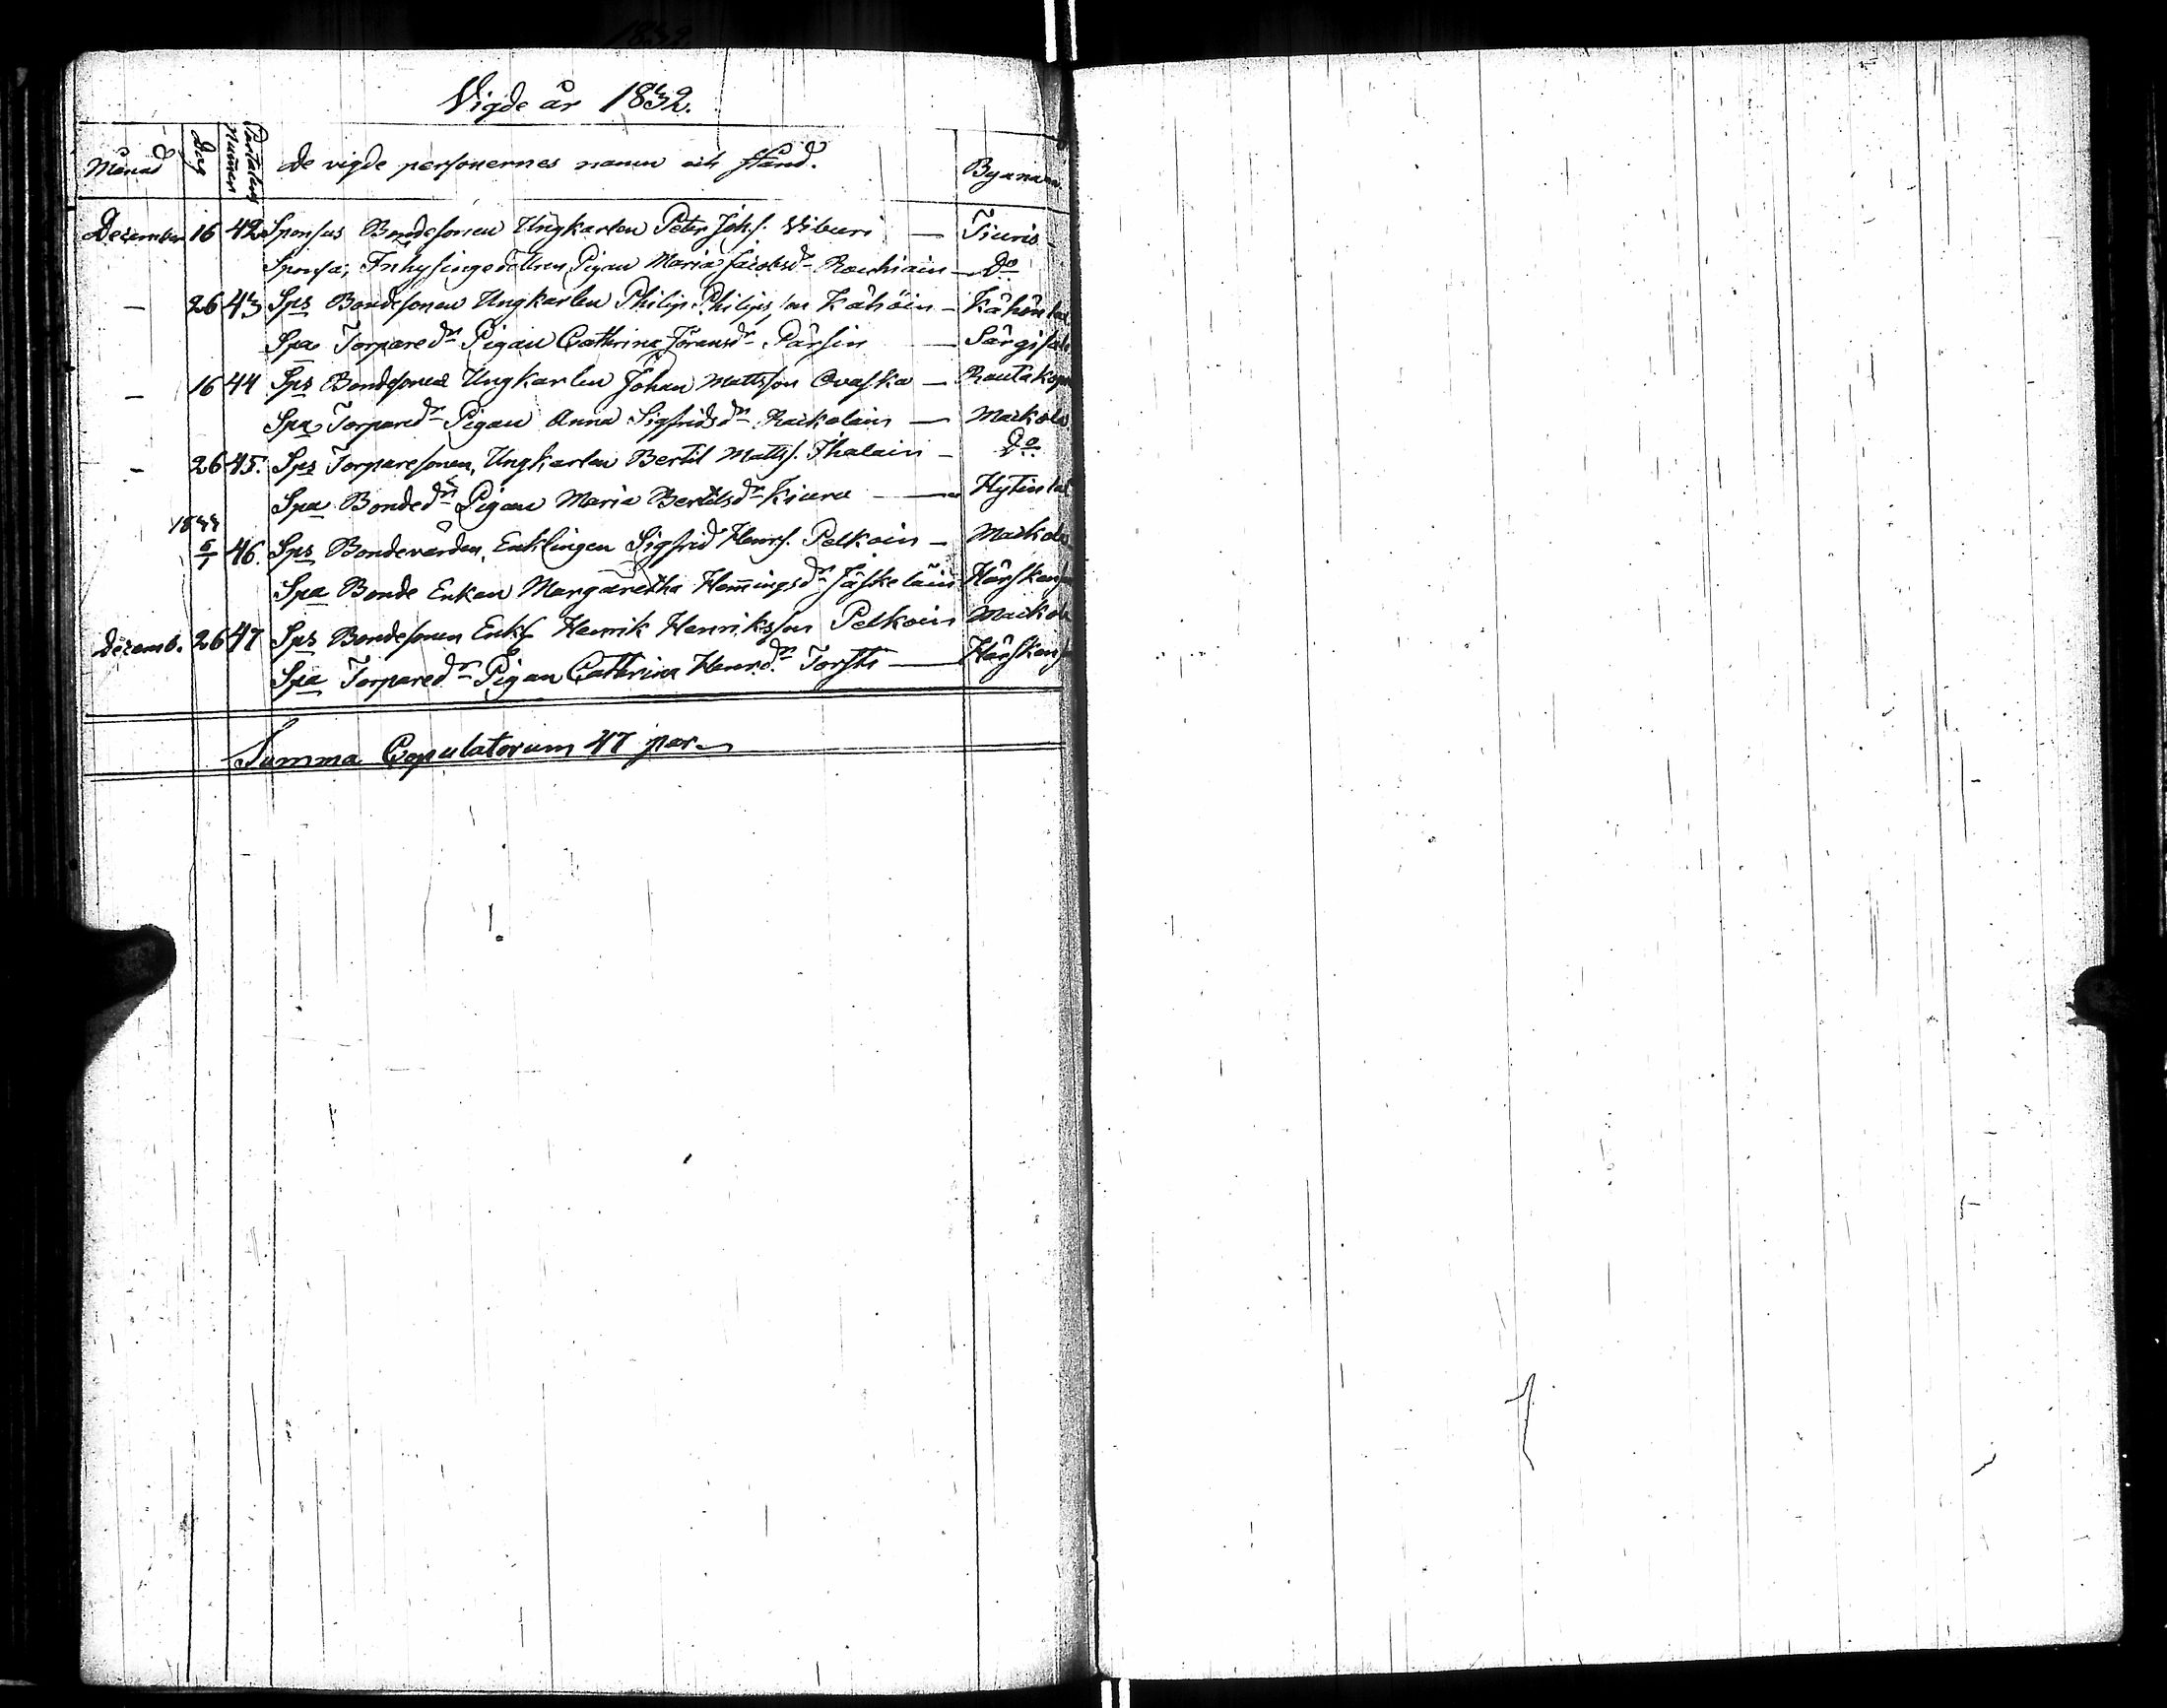 Vigde år 1832.
Månad Dag Partalens Numer De vigde personernes namn och stånd. Byanamn
December 16 42 Sponsus Bondesonen Ungkarlen Peter Johs. Viburi — Tiuris
Sponsa, Inhysingedottren Pigan Maria Jacobsdr Rouhiain — Do
— 26 43 Sps Bondesonen Ungkarlen Philip Philipsson Kähöin — Kähön
Spa Torparedr Pigan Cathrina Göransdr Pärsin — Särgisal
— 16 44 Sps Bondesonen Ungkarlen Johan Mattsson Ovaska — Rautakop
Spa Torparedr Pigan Anna Sigfridsdr — Maikola
— 26 45. Sps Torparesonen, Ungkarlen Bertil Matts. Ihalain — Do
Spa Bondedr Pigan Maria Bertilsdr Kiuru — Hytin
1833
6/1 46. Sps Bondevärden, Enklingen Sigfrid Henrs. Pelkoin — Maikola
Spa Bonde Enkan Margaretha Hemmingsdr Jäskeläin
Decemb. 26 47 Sps Bondesonen Enkl. Henrik Henriksson Pelkoin Maikola
Spa Torparedr Pigan Cathrina Henrdr Torsti —
Summa Copulatorum 47 par